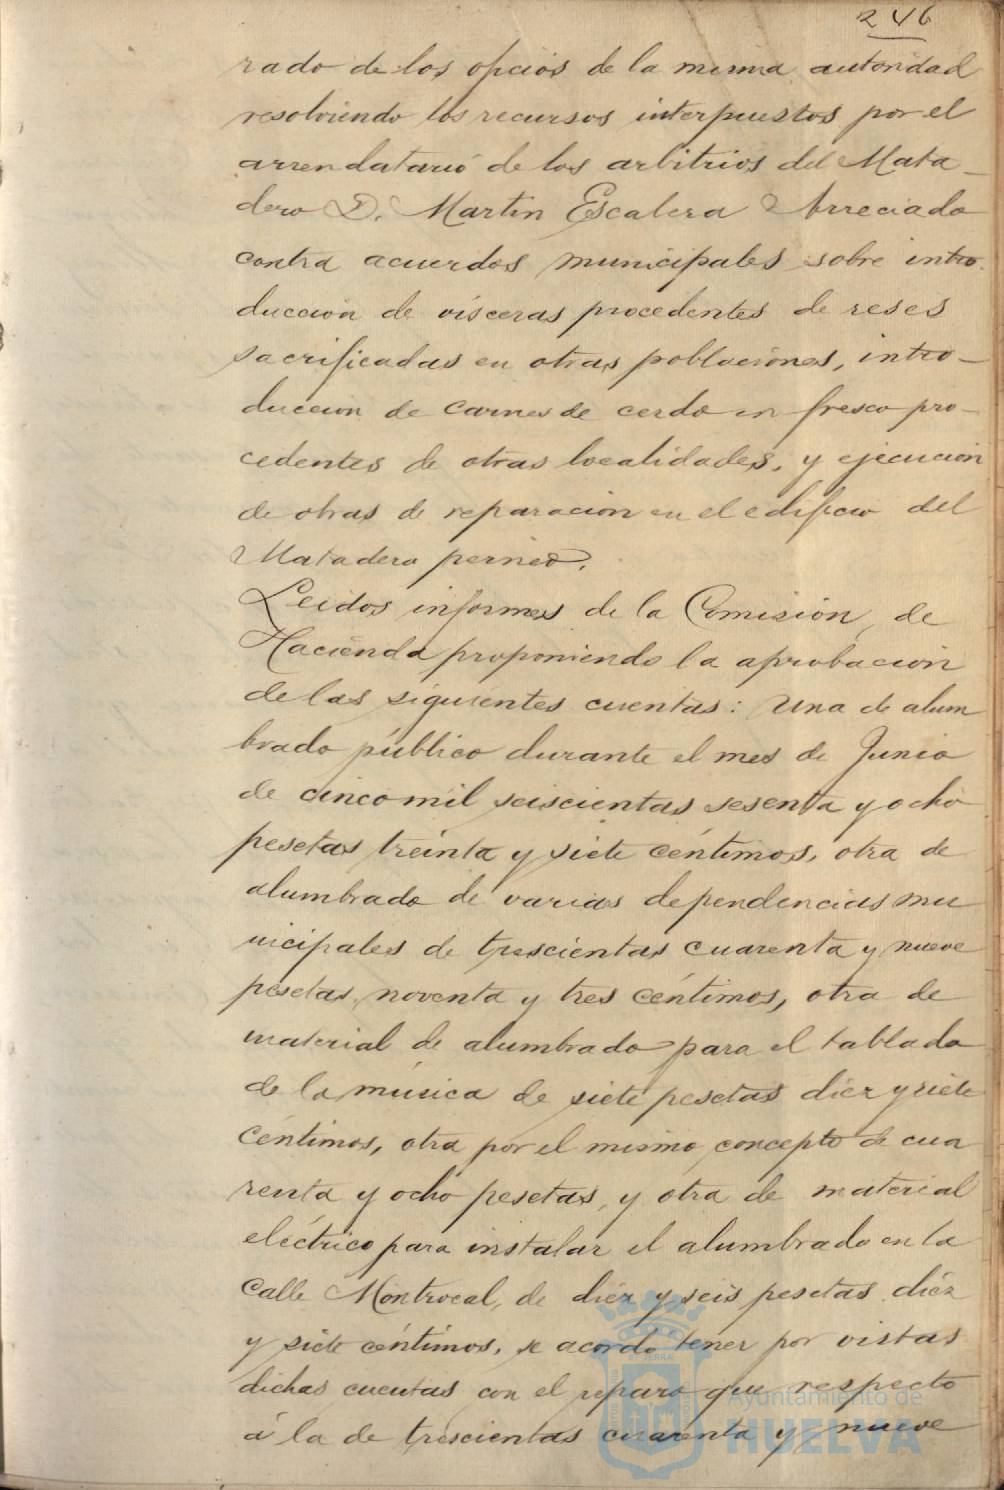 246
rado de los oficios de la misma autoridad
resolviendo los recursos interpuestos por el
arrendatario de los arbitrios del Mata-
dero D. Martin Escalera Arreciado
contra acuerdos municipales sobre intro-
duccion de vísceras procedentes de reses
sacrificadas en otras poblaciones, intro-
duccion de carnes de cerdo en fresco pro-
cedentes de otras localidades, y ejecucion
de obras de reparacion en el edificio del
Matadero
Leidos informes de la Comisión de
Hacienda proponiendo la aprobacion
de las siguientes cuentas: Una de alum
brado público durante el mes de Junio
de cinco mil seiscientas sesenta y ocho
pesetas treinta y siete céntimos, otra de
alumbrado de varias dependencias mu
nicipales de trescientas cuarenta y nueve
pesetas noventa y tres céntimos, otra de
material de alumbrado para el tablado
de la música de siete pesetas diez y siete
céntimos, otra por el mismo concepto de cua
renta y ocho pesetas, y otra de material
eléctrico para instalar el alumbrado en la
Calle Montrocal, de diez y seis pesetas diez
y siete céntimos, se acordo tener por vistas
dichas cuentas con el reparo que respecto
á la de trescientas cuarenta y nueve
Ayuntamiento de
HUELVA